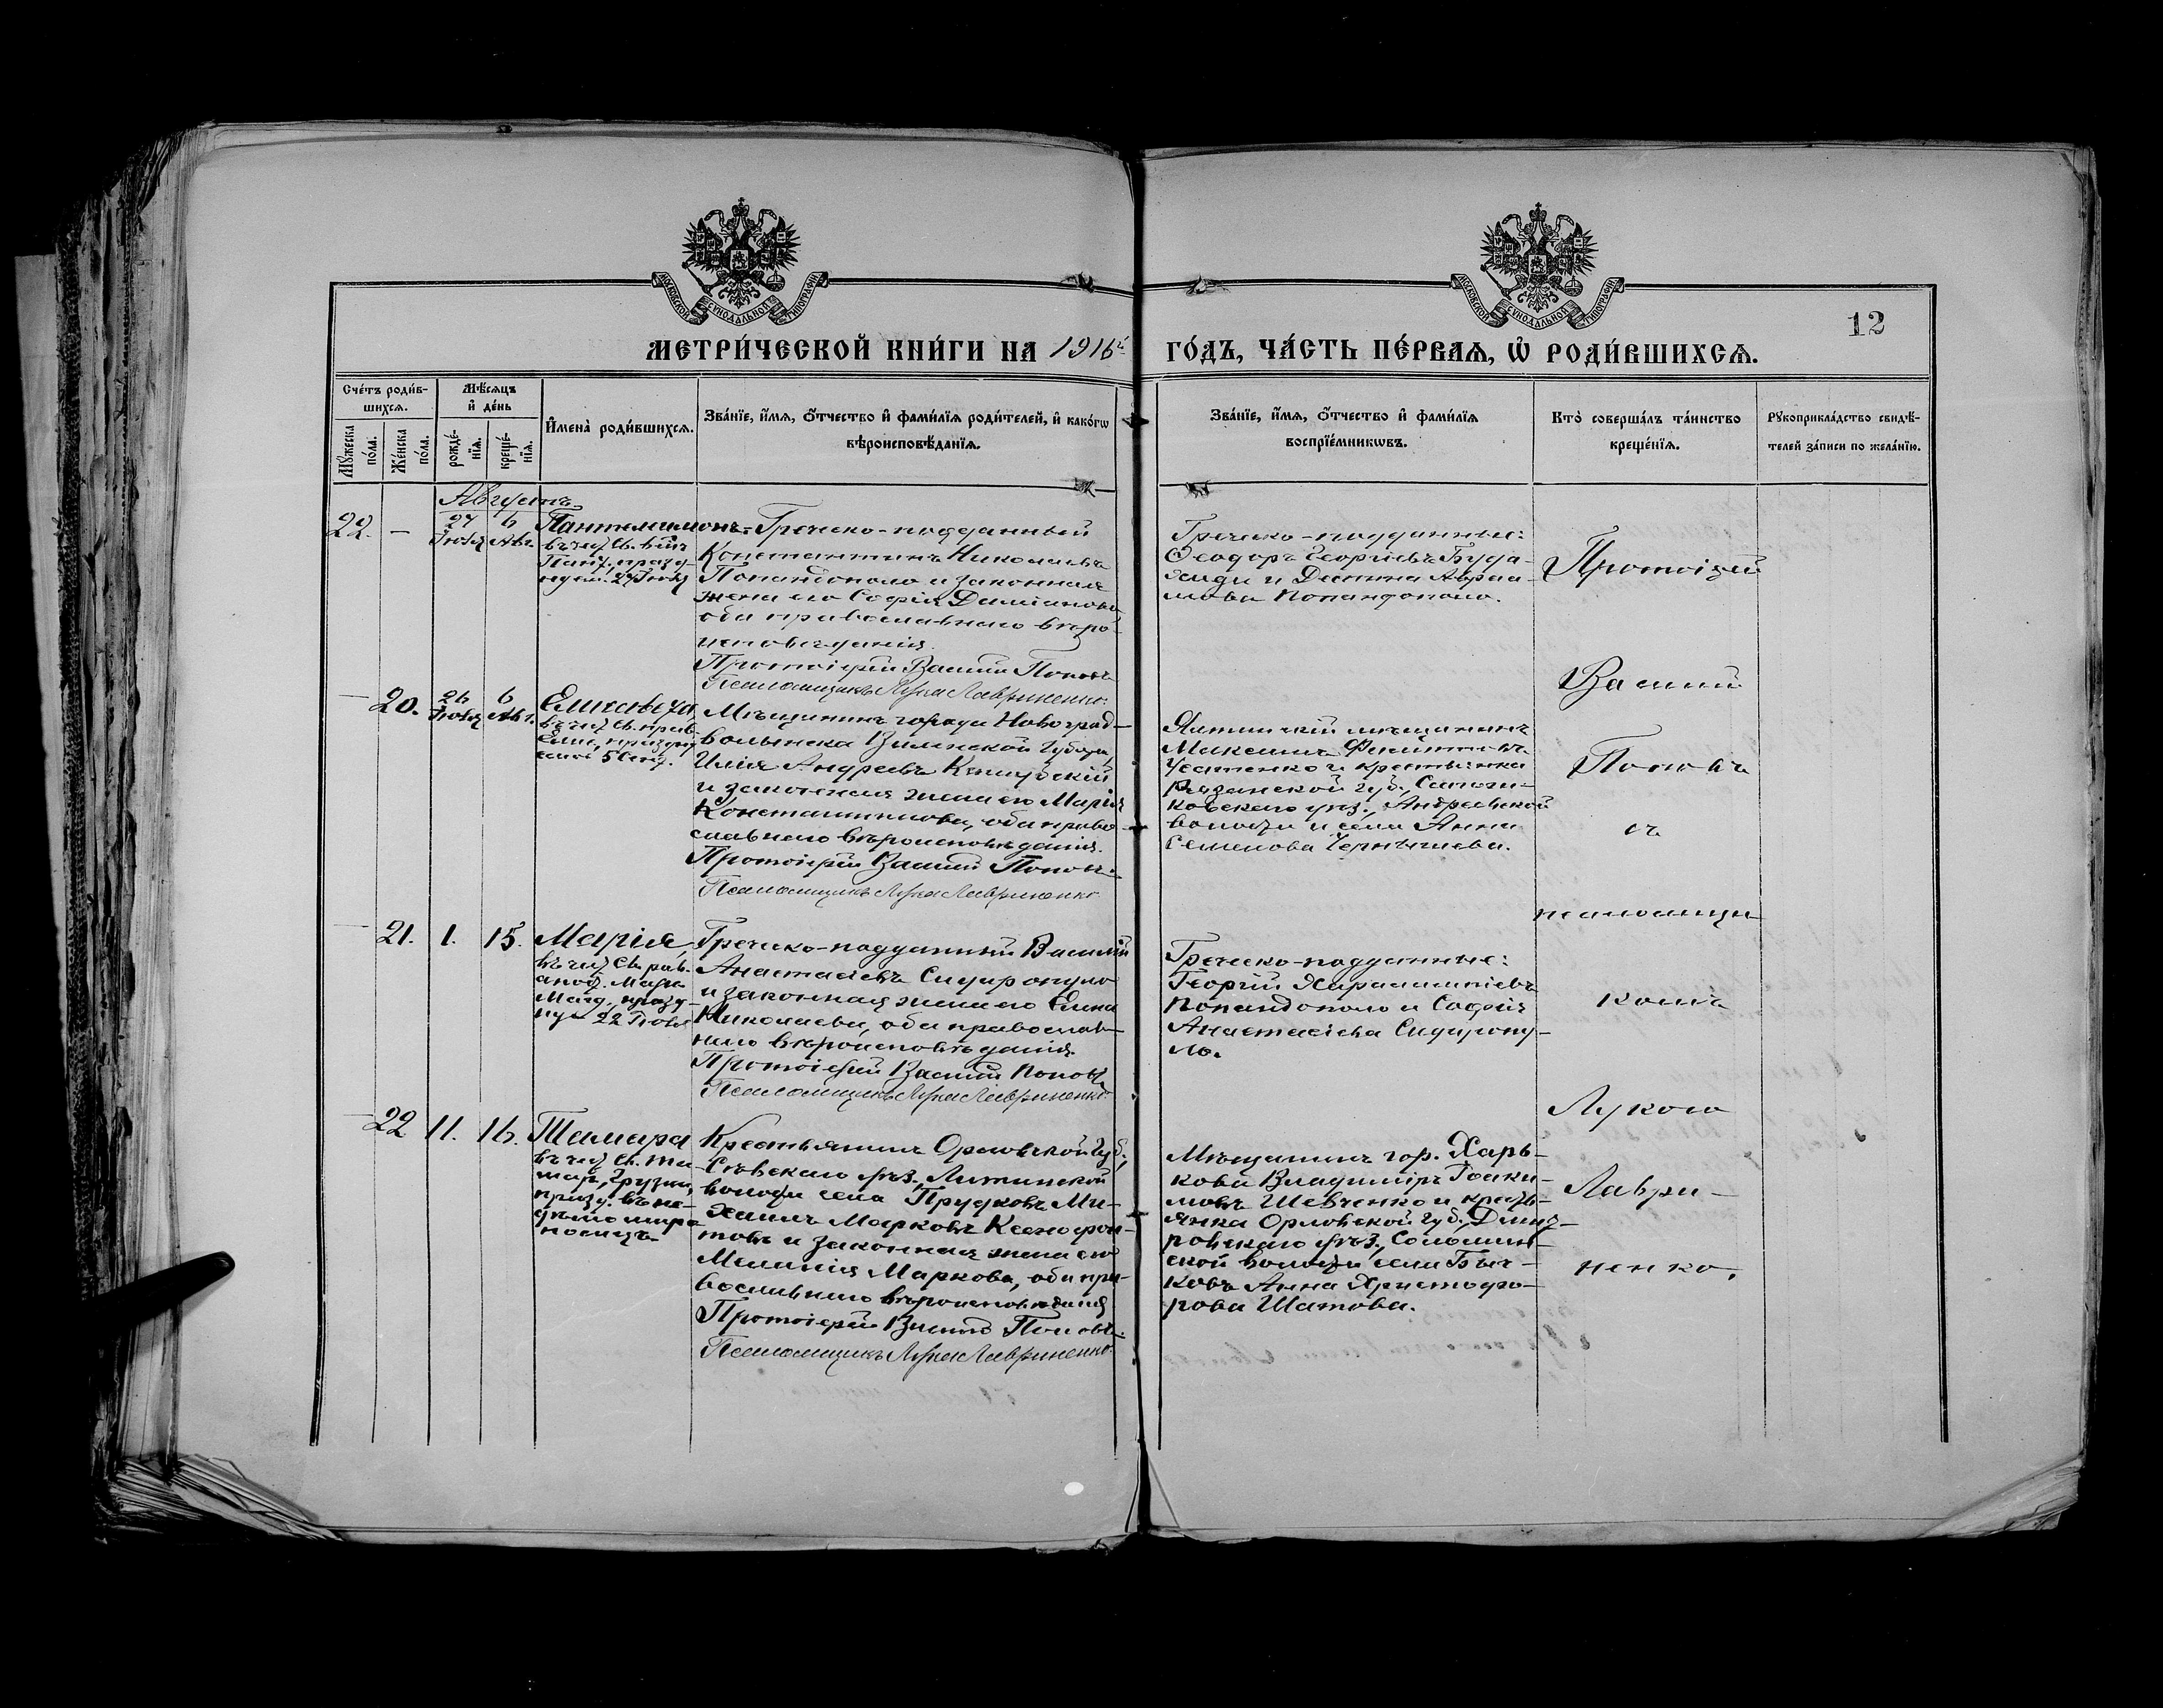 МОСКОВСКОЙ СѴНОДАЛЬНОЙ ТИПОГРАФІИ
МОСКОВСКОЙ СѴНОДАЛЬНОЙ ТИПОГРАФІИ
12
МЕТРИ́ЧЕСКОЙ КНИ́ГИ НА 1916й ГО́ДЪ, ЧА́СТЬ ПЕ́РВАѦ, Ѡ҆ РОДИ́ВШИХСѦ.
Сче́тъ роди́в-
шихсѧ.
Мꙋ́жеска по́ла.
Же́нска по́ла.
Мѣ́сѧцъ
и҆ де́нь
рожде́-
нїѧ.
креще́-
нїѧ.
И҆мена̀ роди́вшихсѧ.
Зва́нїе, и҆́мѧ, ѻ҆́тчество и҆ фами́лїѧ роди́телей, и҆ како́гѡ
вѣроисповѣ́данїѧ.
Зва́нїе, и҆́мѧ, ѻ҆́тчество и҆ фами́лїѧ
воспрїе́мникѡвъ.
Кто̀ соверша́лъ та́инство
креще́нїѧ.
Рꙋкоприкла́дство свидѣ́-
телей за́писи по жела́нїю.
Августъ
22. — 27 Іюля 6 Авг. Пантелеимонъ
въ чес. Св. Вмч.
Пант., празд-
нуем. 27 Іюля
Греческо-подданный
Константинъ Николаевъ
Попандополо и законная
жена его Софія Даміанова
оба православнаго вѣро-
исповѣданія.
Протоіерей Василій Поповъ
Псаломщикъ Лука Лавриненко.
Греческо-подданные:
Ѳеодоръ Георгіевъ Буда-
хиди и Деспина Авраа-
мова Попандополо.
— 20. 26 Іюля 6 Авг. Елисавета,
въ чес. Св. прав.
Елис., праздну
емой 5 Сент.
Мѣщанинъ города Новоград-
волынска Волынской Губерн.
Илія Андреевъ
и законная жена его Марія
Константинова, оба право-
славнаго вѣроисповѣданія.
Протоіерей Василій Поповъ.
Псаломщикъ Лука Лавриненко.
Ялтинскій мѣщанинъ
Максимъ
Усатенко и крестьянка
Рязанской губ., Сапож-
ковскаго уѣз., Андреевской
волости и села Анна
Семенова Чернышева.
— 21. 1. 15. Марія,
въ чес. Св. рав-
апос. Маріи
Магд., празд-
нуем 22 Іюля
Греческо-подданный Василій
Анастасіевъ Сидиропуло
и законная жена его Елена
Николаева, оба православ-
наго вѣроисповѣданія.
Протоіерей Василій Поповъ
Псаломщикъ Лука Лавриненко.
Греческо-подданные:
Георгій Харалампіевъ
Попандополо и Софія
Анастасіева Сидиропу-
ло.
— 22 11. 16. Тамара
въ чес. Св. Та-
мар., Грузин.,
празд. въ не-
дѣлю миро-
носицъ
Крестьянинъ Орловской Губ.,
Сѣвскаго уѣз. Литижской
волости села Прудковъ Ми-
хаилъ Марковъ Ксенофон-
товъ и законная жена его
Меланія Маркова, оба пра-
вославнаго вѣроисповѣданія
Протоіерей Василій Поповъ.
Псаломщикъ Лука Лавриненко.
Мѣщанинъ гор. Харь-
кова Владиміръ Іоаки-
мовъ Шевченко и кресть-
янка Орловской губ., Дмит-
ровскаго уѣз.,
ской волости села Быч-
ковъ Анна Христофо-
рова Шатова.
Протоіерей
Василій
Поповъ
съ
псаломщи-
комъ
Лукою
Лаври-
ненко.